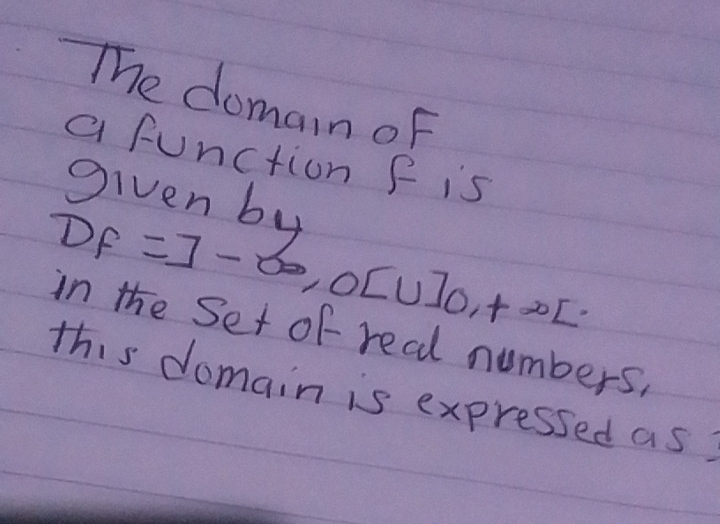 The domain of
a function f is
given by
Df = ]-∞, 0[ U ]0, +∞[.
in the set of real numbers,
this domain is expressed as: